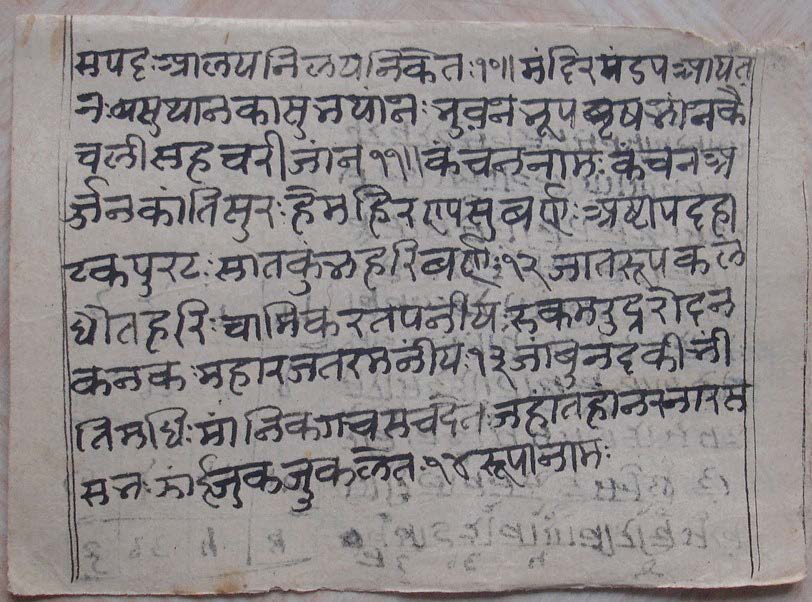 सपदः आलयनिलयनिकेतः १०॥ मंदिरमंडपआयत
नः वसुथानकासुमथानः भुवन भूप वृषभांनकै
चलीसहचरीजांन ११॥ कंचननांमः कंचनअ
र्जुनकांतिसुरः हेमहिरणपसुबर्णः अष्टापदहा
टकपुरटः सातकुंभहरिबर्णः १२ जातरूपकल
धौतहरिः चामिकरतपनीयः रुकमरुद्ररोदन
कनकः महारजतरमनीयः १३ जांबुनदकीभीं
तिमधिः मांनिकगचसचदेतः जहातहांनरनारस
सनः झांईजुकजुकलेत १४ रूपांनामः